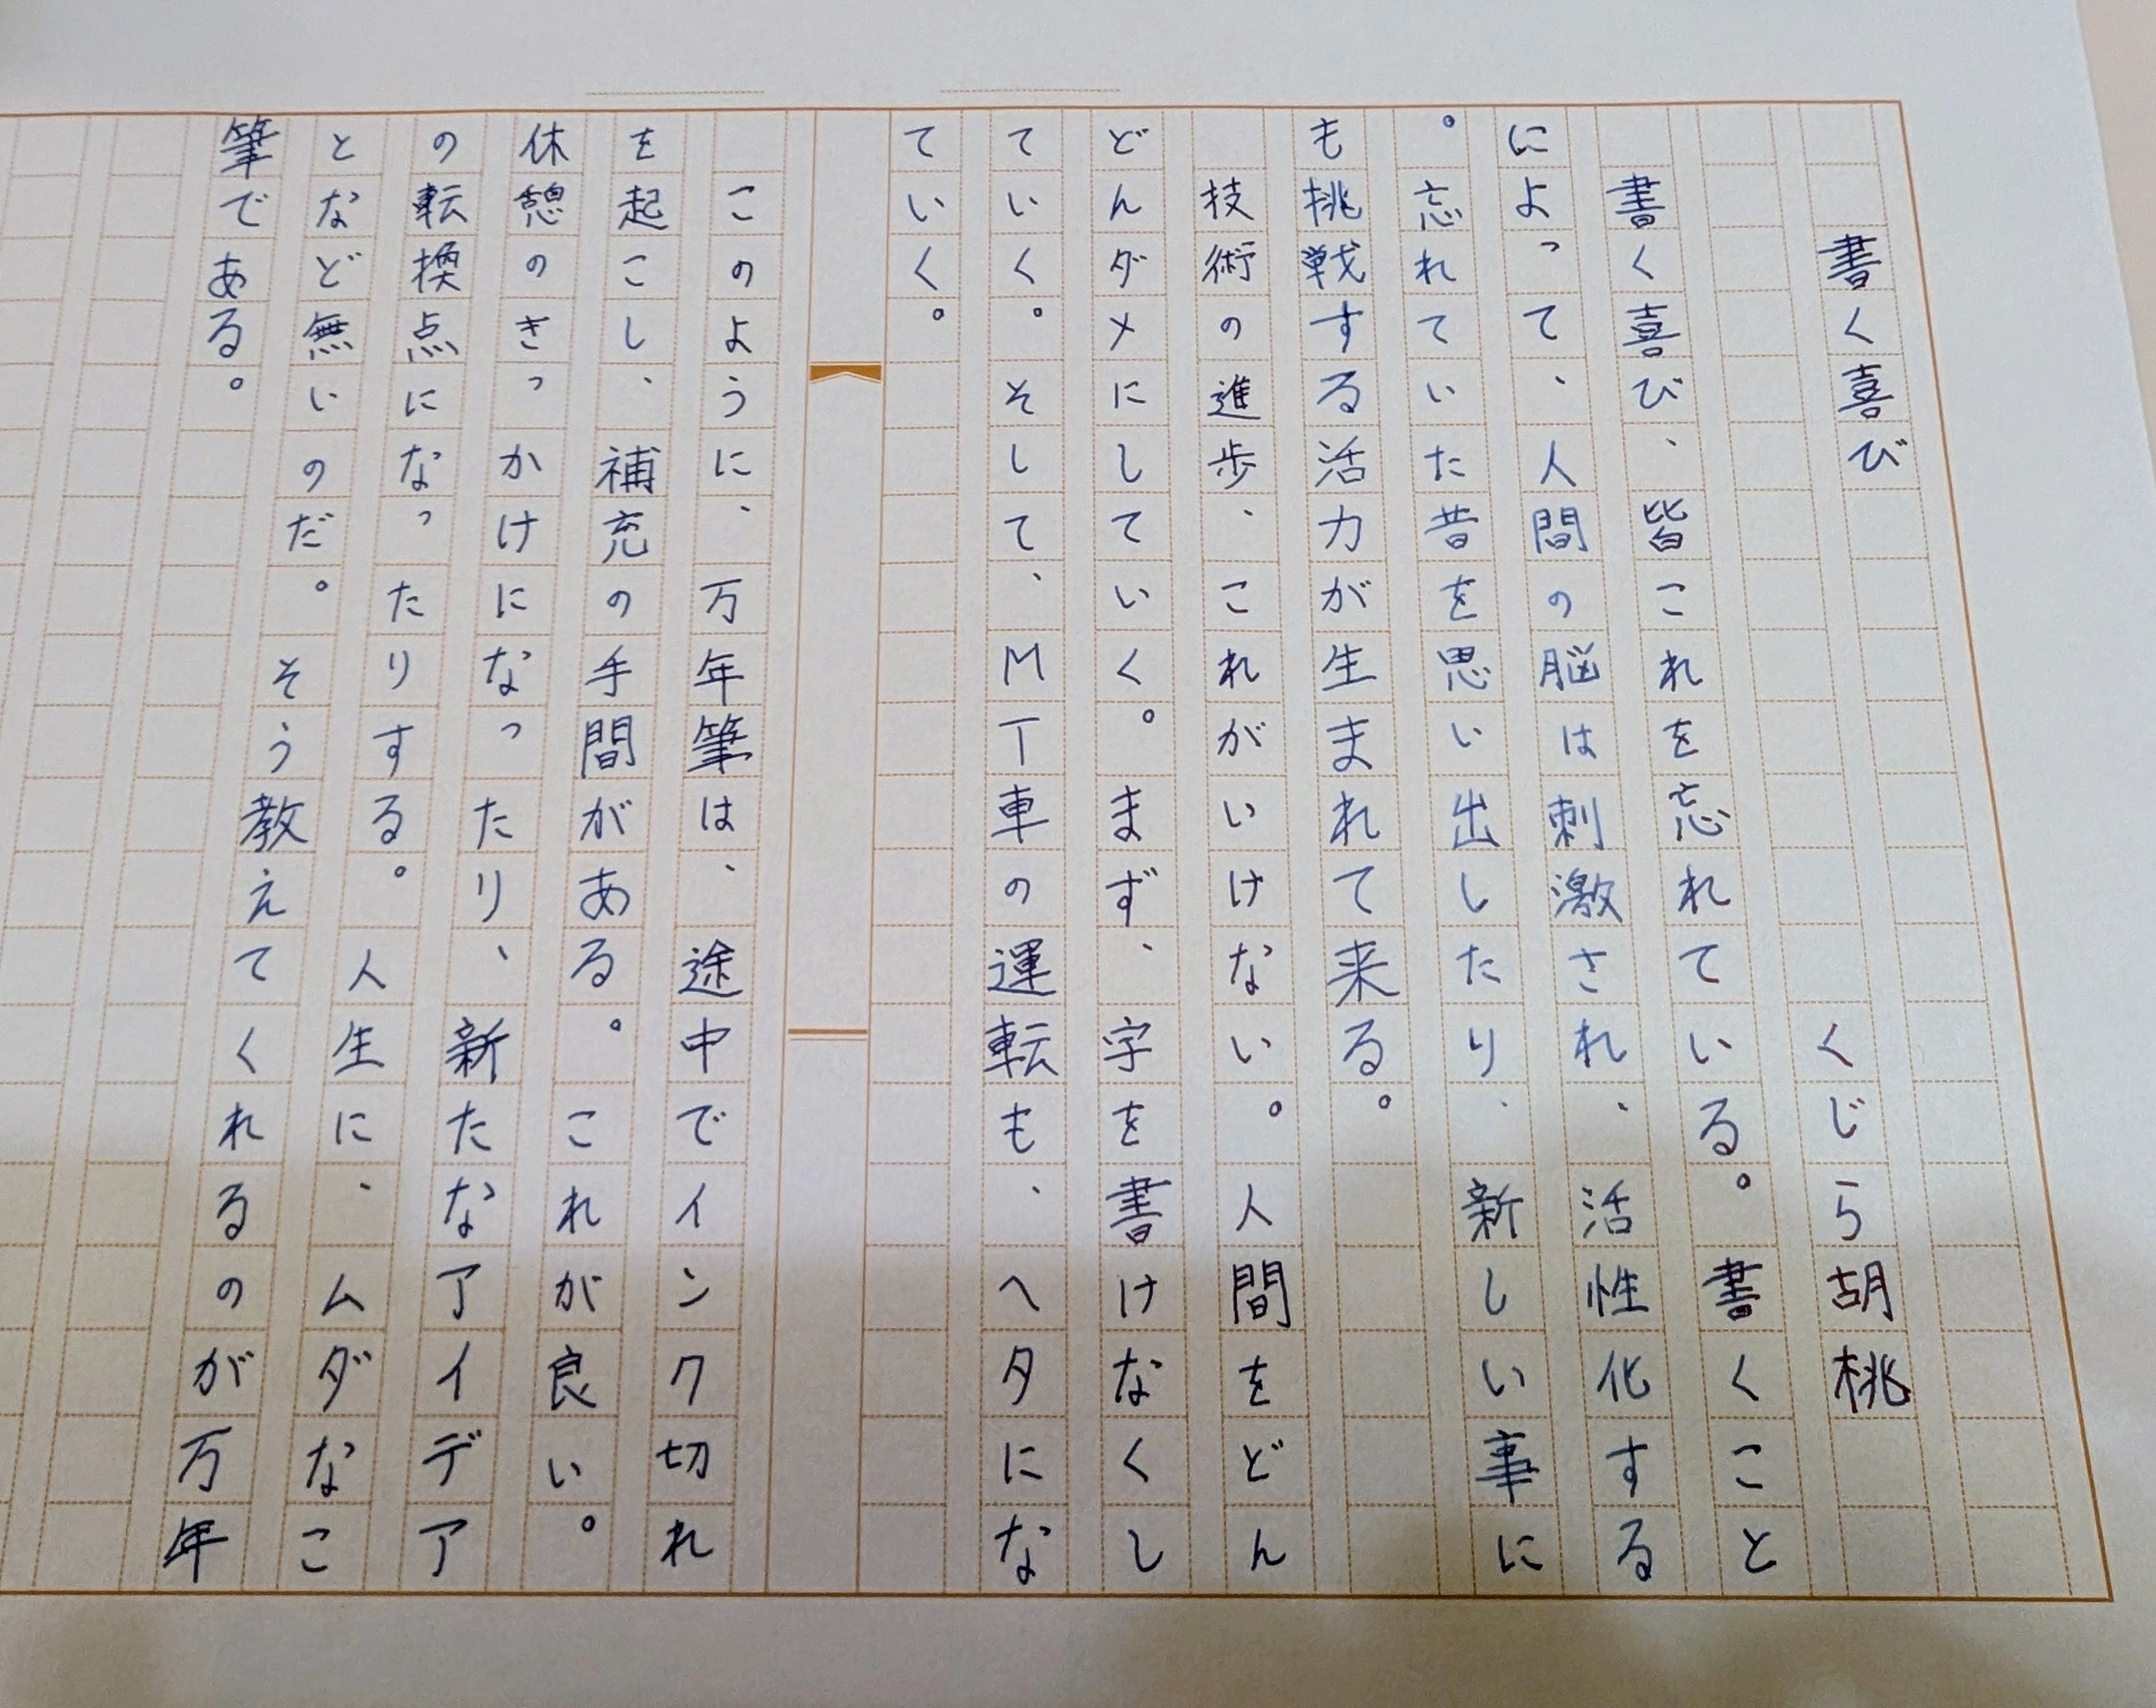 書く喜び
くじら胡桃
書く喜び、皆これを忘れている。書くこと
によって、人間の脳は刺激され、活性化する
。忘れていた昔を思い出したり、新しい事に
も挑戦する活力が生まれて来る。
技術の進歩、これがいけない。人間をどん
どんダメにしていく。まず、字を書けなくし
ていく。そして、MT車の運転も、ヘタにな
ていく。
このように、万年筆は、途中でインク切れ
を起こし、補充の手間がある。これが良い。
休憩のきっかけになったり、新たなアイデア
の転換点になったりする。人生に、ムダなこ
となど無いのだ。そう教えてくれるのが万年
筆である。